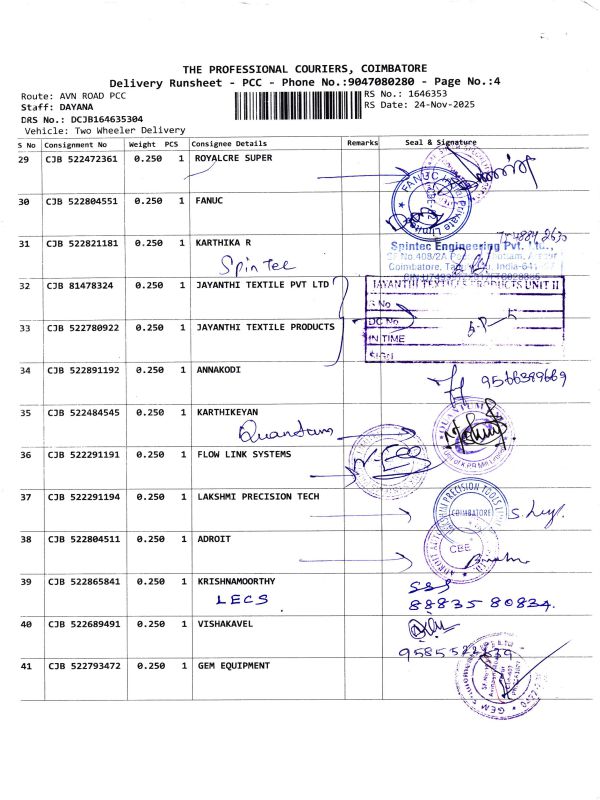 THE PROFESSIONAL COURIERS, COIMBATORE
Delivery Runsheet - PCC - Phone No.:9047080280 - Page No.:4
Route: AVN ROAD PCC
RS No.: 1646353
Staff: DAYANA
RS Date: 24-Nov-2025
DRS No.: DCJB164635304
Vehicle: Two Wheeler Delivery
S No Consignment No Weight PCS Consignee Details Remarks Seal & Signature
29 CJB 522472361 0.250 1 ROYALCRE SUPER
30 CJB 522804551 0.250 1 FANUC
FANUC
Private Limited
31 CJB 522821181 0.250 1 KARTHIKA R
Spintec
Spintec Engineering Pvt. Ltd.,
SF No.408/2A
Coimbatore, India-641
32 CJB 81478324 0.250 1 JAYANTHI TEXTILE PVT LTD
JAYANTHI TEXTILE PRODUCTS UNIT II
S.No
DC No
IN TIME
SIGN
33 CJB 522780922 0.250 1 JAYANTHI TEXTILE PRODUCTS
34 CJB 522891192 0.250 1 ANNAKODI
9566399669
35 CJB 522484545 0.250 1 KARTHIKEYAN
Quantum
36 CJB 522291191 0.250 1 FLOW LINK SYSTEMS
37 CJB 522291194 0.250 1 LAKSHMI PRECISION TECH
PRECISION TOOLS
COIMBATORE
38 CJB 522804511 0.250 1 ADROIT
CBE
39 CJB 522865841 0.250 1 KRISHNAMOORTHY
LECS
88835 80834.
40 CJB 522689491 0.250 1 VISHAKAVEL
41 CJB 522793472 0.250 1 GEM EQUIPMENT
GEM